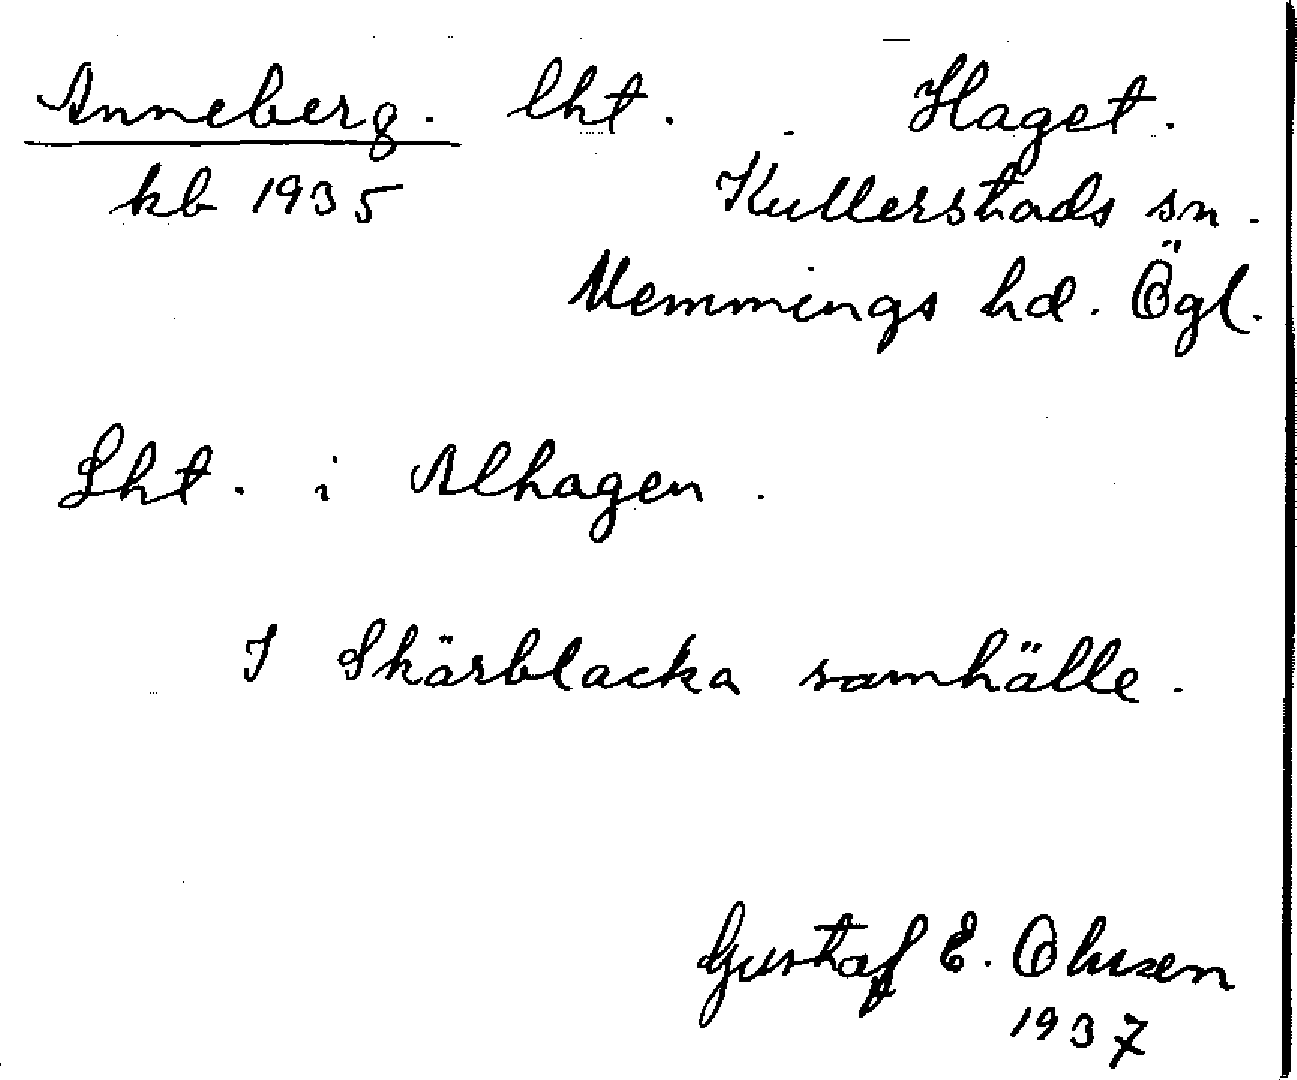 Anneberg. lht. Haget.
kb 1935 Kullerstads sn.
Memmings hd. Ögl.
Lht. i Alhagen.
I Skärblacka samhälle.
Gustaf E. Olusen
1937